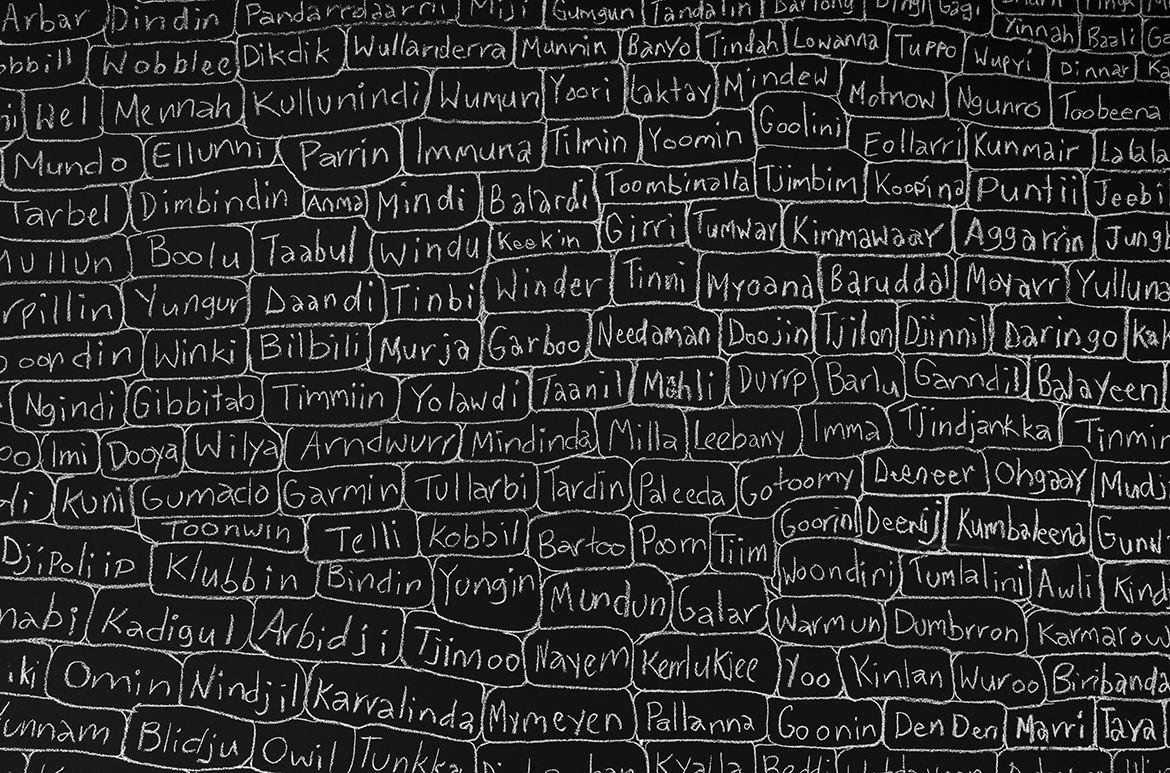 Arbar Dindin Pandarrdaarni Miji Gumgun Tandalin Bartong Gagi
Yinnah Baali
Wobblee Dikdik Wullanderra Munnin Banyo Tindah Lowanna Tuppo Wupyi Dinnar
Wel Mennah Kullunindi Wumun Yoori Laktay Mindew Motnow Ngunro Toobeena
Mundo Ellunni Parrin Immuna Tilmin Yoomin Goolini Eollarri Kunmair Lalala
Tarbel Dimbindin Anma Mindi Balardi Toombinalla Tjimbim Koopina Puntii Jeebi
Boolu Taabul Windu Keekin Girri Tumwar Kimmawaar Aggarrin
Yungur Daandi Tinbi Winder Tinni Myoana Baruddal Moyarr Yulluna
Winki Bilbili Murja Garboo Needaman Doojin Tjilon Djinnil Daringo
Ngindi Gibbitab Timmiin Yolawdi Taanil Mahli Durrp Barlu Ganndil Balayeen
Imi Dooya Wilya Arndwurr Mindinda Milla Leebany Imma Tjindjankka
Kuni Gumaclo Garmin Tullarbi Tardin Paleeda Gotoomy Deeneer Ohgaay
Toonwin Telli Kobbil Bartoo Poorn Tiim Goorinl Deenij Kumbaleena
Djipoljip Klubbin Bindin Yungin Mundun Galar Woondiri Tumlalini Awli
Kadigul Arbidji Tjimoo Nayem Kerrlukjee Warmun Dumbrron
Omin Nindjil Karralinda Mymeyen Pallanna Yoo Kinlan Wuroo Biribanda
Blidju Owil Tunkka Goonin Den Den Marri Taya
Kyalla Beddi